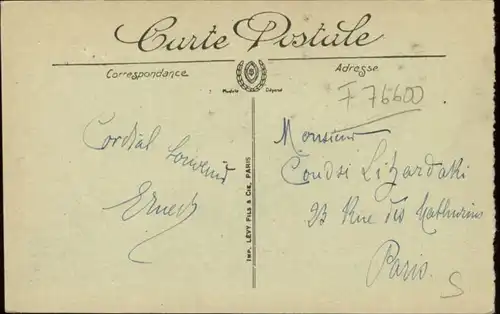 Carte Postale
Correspondance
Adresse
Modèle Déposé
F 76600
Cordial Souvenir
Ernest
Monsieur
Condsi Lizardaki
23 Rue des Mathurins
Paris.
S
IMP. LÉVY FILS & CIE, PARIS